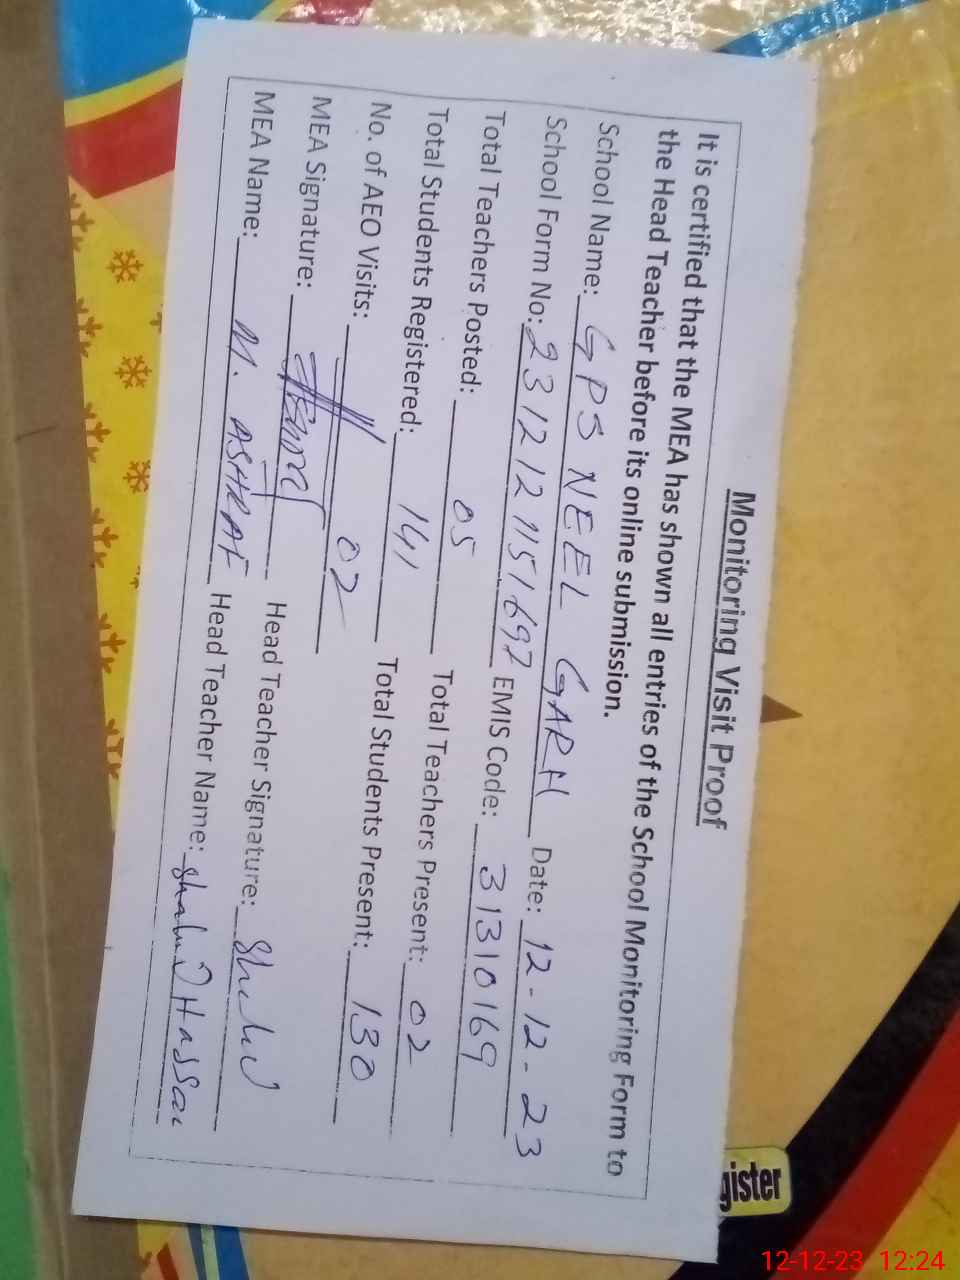 Monitoring Visit Proof
It is certified that the MEA has shown all entries of the School Monitoring Form to
the Head Teacher before its online submission.
School Name: GPS NEEL GARH Date: 12-12-23
School Form No: 2312121151697 EMIS Code: 31310169
Total Teachers Posted: 05 Total Teachers Present: 02
Total Students Registered: 141 Total Students Present: 130
No. of AEO Visits: 02
MEA Signature: Head Teacher Signature:
MEA Name: M. ASHRAF Head Teacher Name: Hassan
gister
12-12-23 12:24